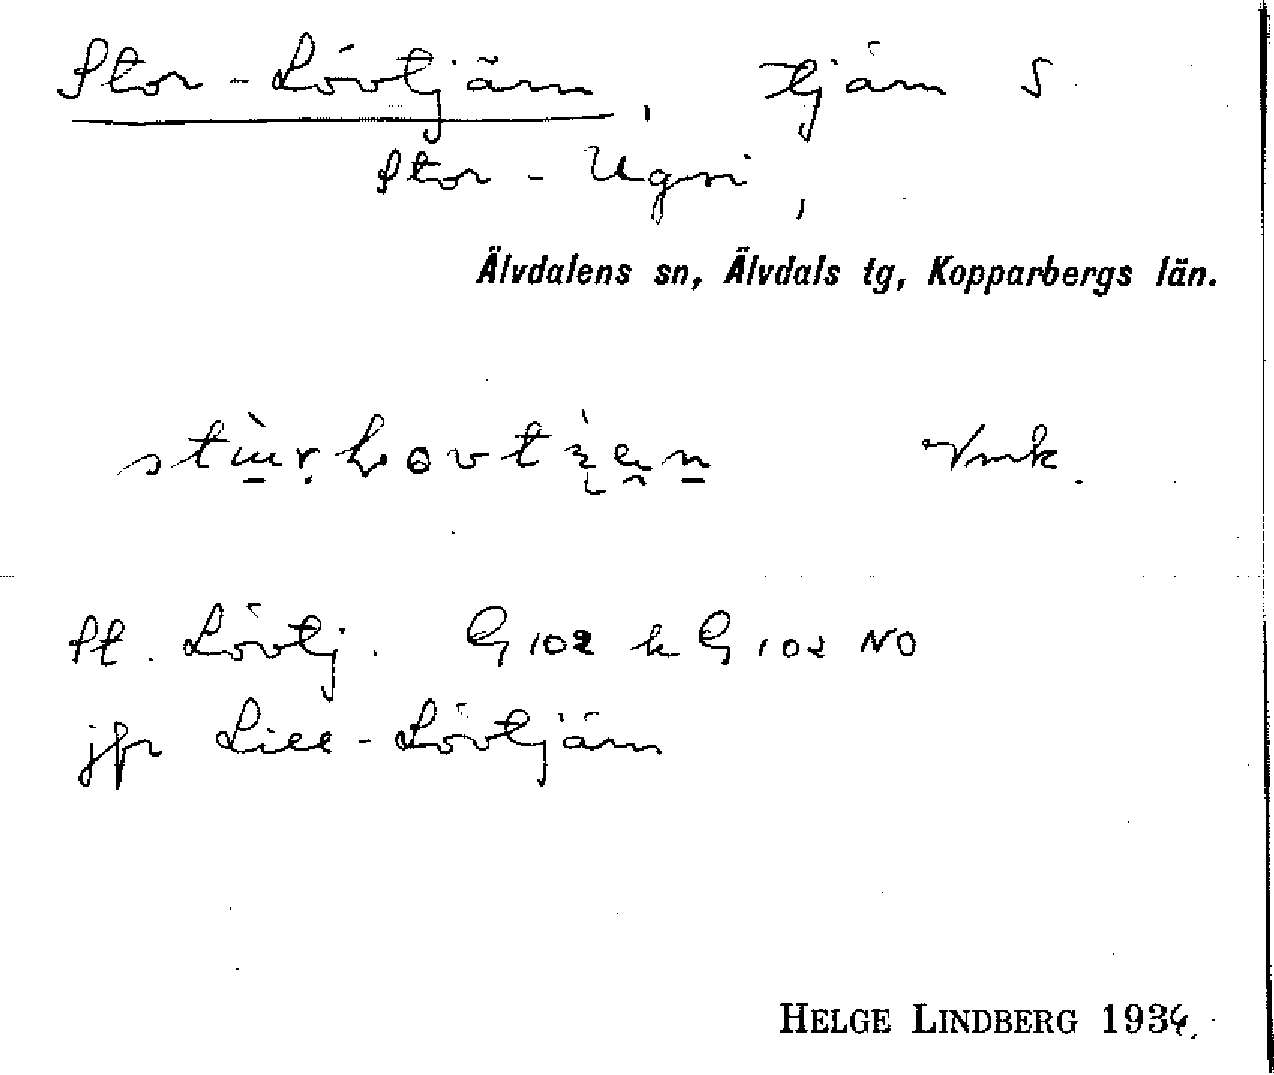 Stor-Lövtjärn, tjärn S
Stor-Ugsi,
Älvdalens sn, Älvdals tg, Kopparbergs län.
Vmk.
St. Lövtj. G 102 k G 102 NO
jfr Lill-Lövtjärn
HELGE LINDBERG 1934.